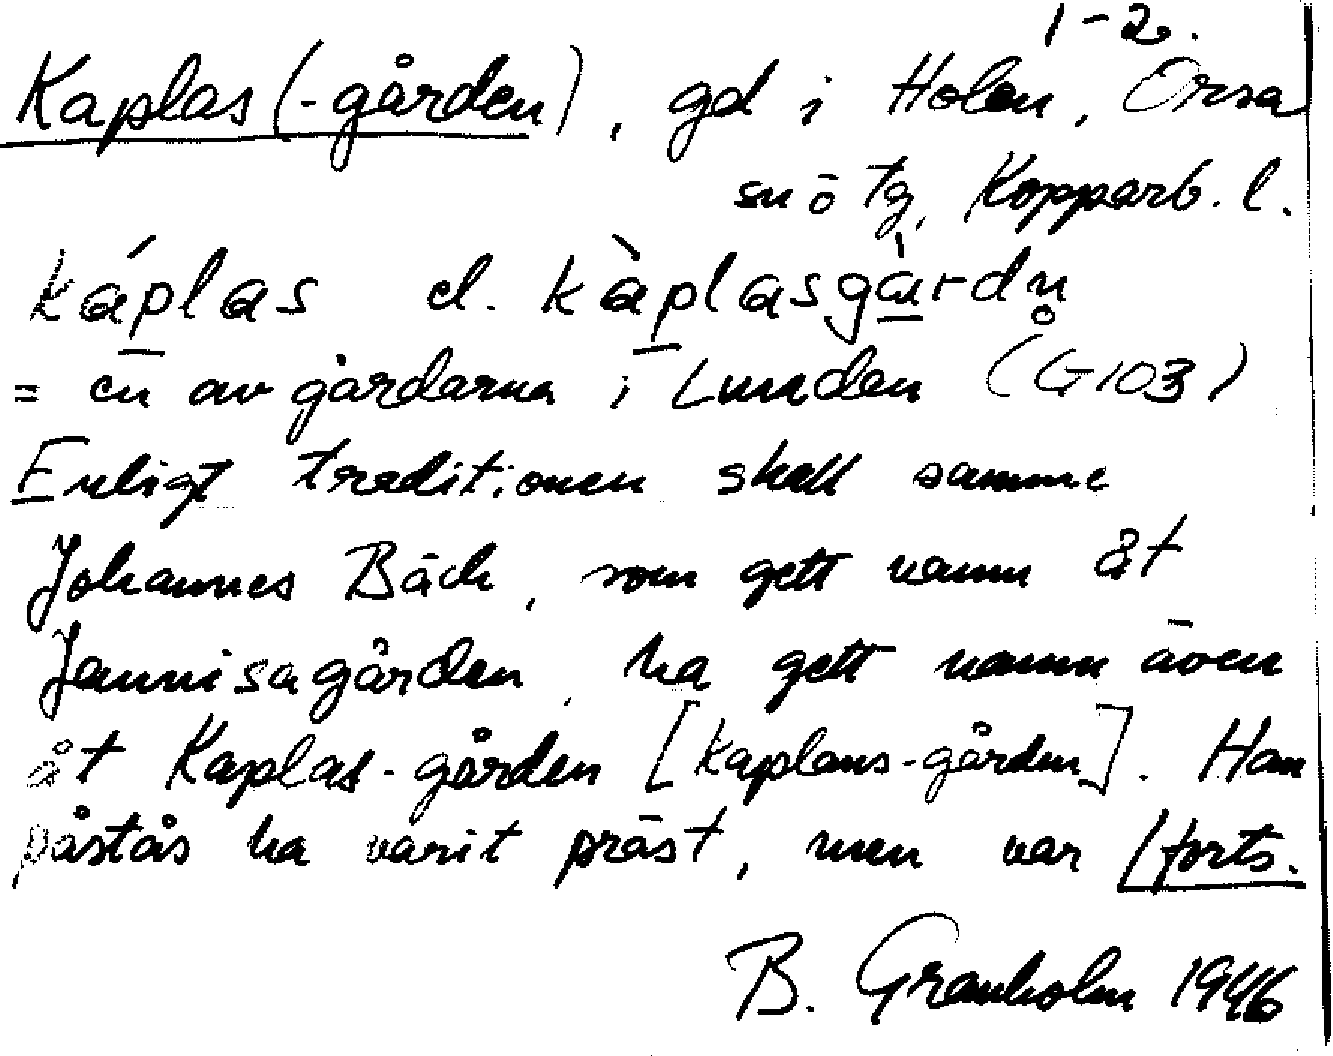 1-2.
Kaplas(-gården), gd i Holen, Orsa
sn o tg, Kopparb. l.
káplas el. kàplasgàrdn̥
= en av gårdarna i Lunden (G103)
Enligt traditionen skall samme
Johannes Bäck, som gett namn åt
Jannisagården, ha gett namn även
åt Kaplas-gården [kaplans-gården]. Han
påstås ha varit präst, men var /forts.
B. Granholm 1946